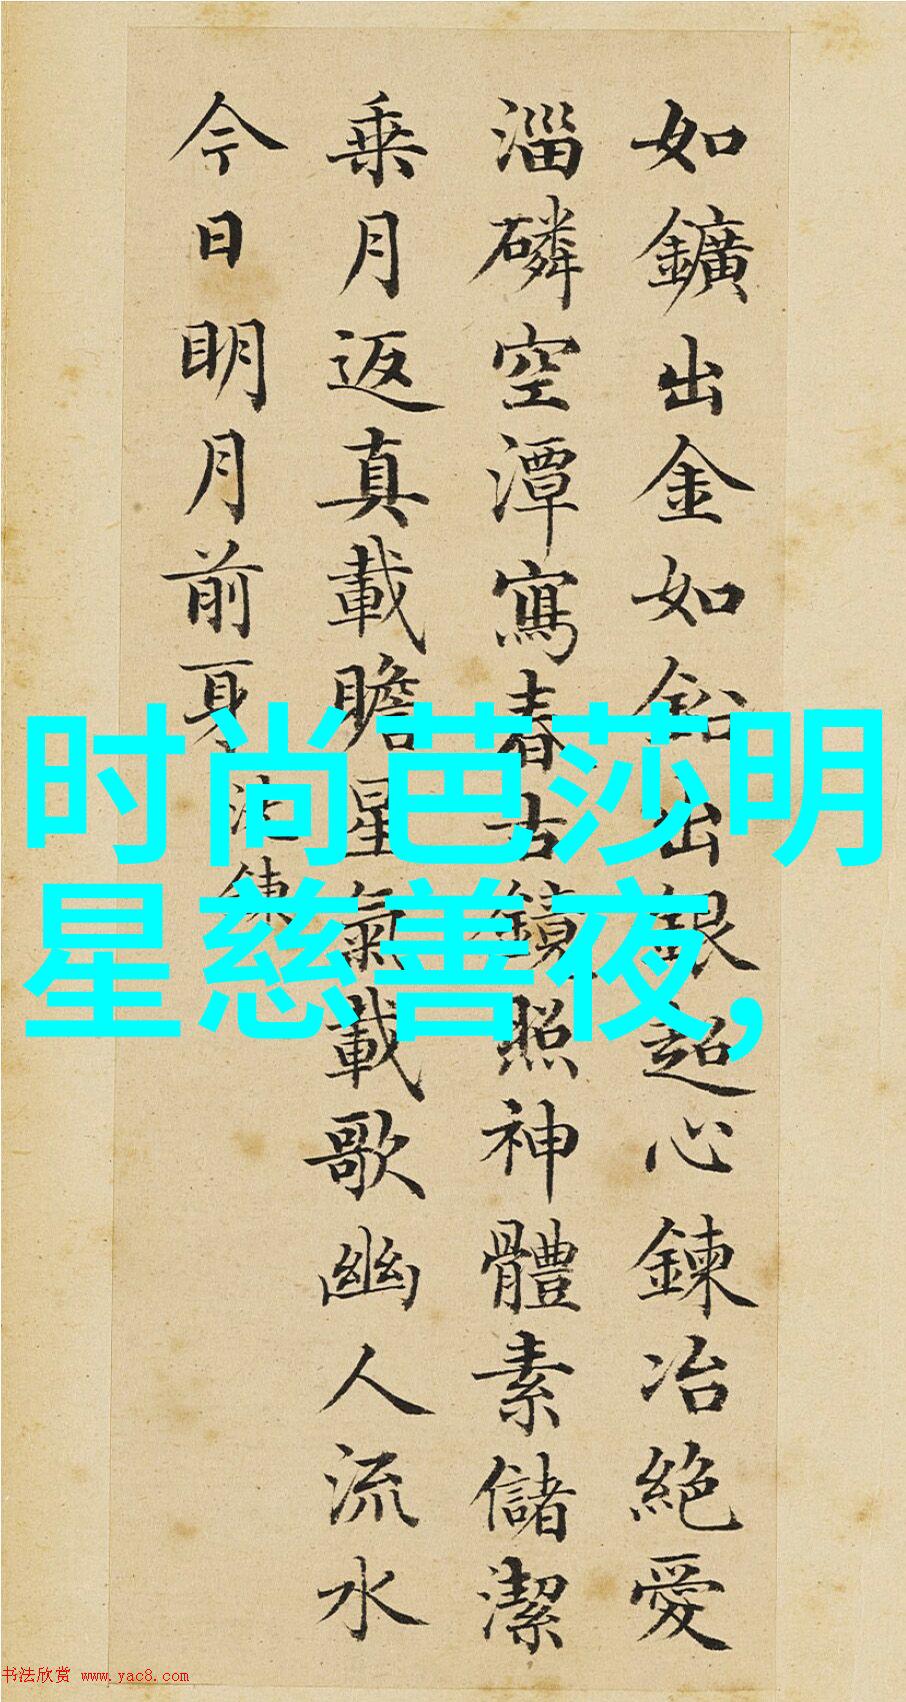 如鑛出金如鉛出銀超心鍊冶絶愛
淄磷空潭寫春古鏡照神體素儲潔
乘月返真載瞻星氣載歌幽人流水
今日明月前身 洗鍊
时尚芭莎明
星慈善夜,
书法欣赏 www.yac8.com